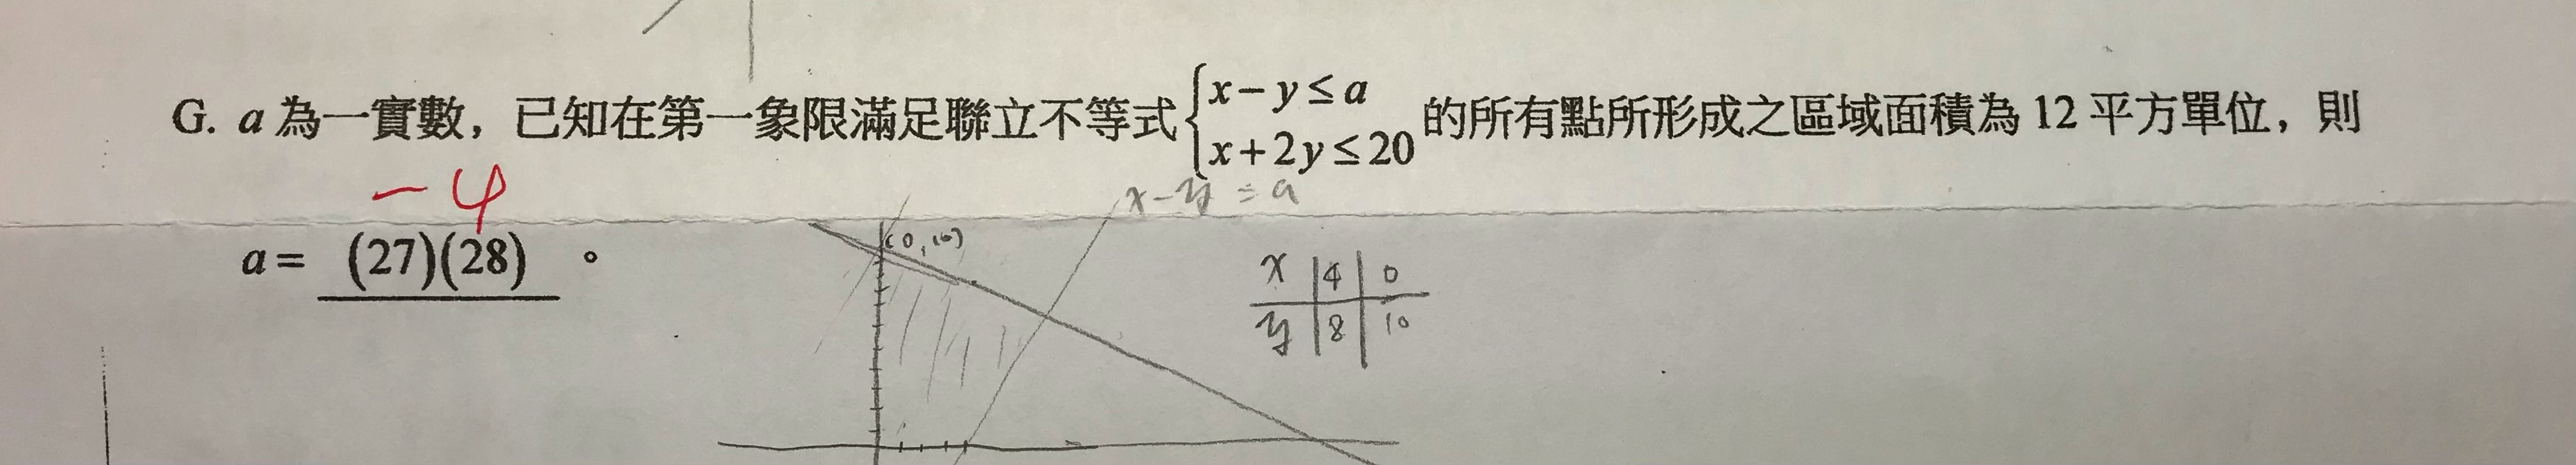 G. a 為一實數，已知在第一象限滿足聯立不等式 { x − y ≤ a
x + 2y ≤ 20 的所有點所形成之區域面積為 12 平方單位，則
x − y = a
−4
a = (27)(28) 。
(0, 10)
x | 4 | 0
y | 8 | 10